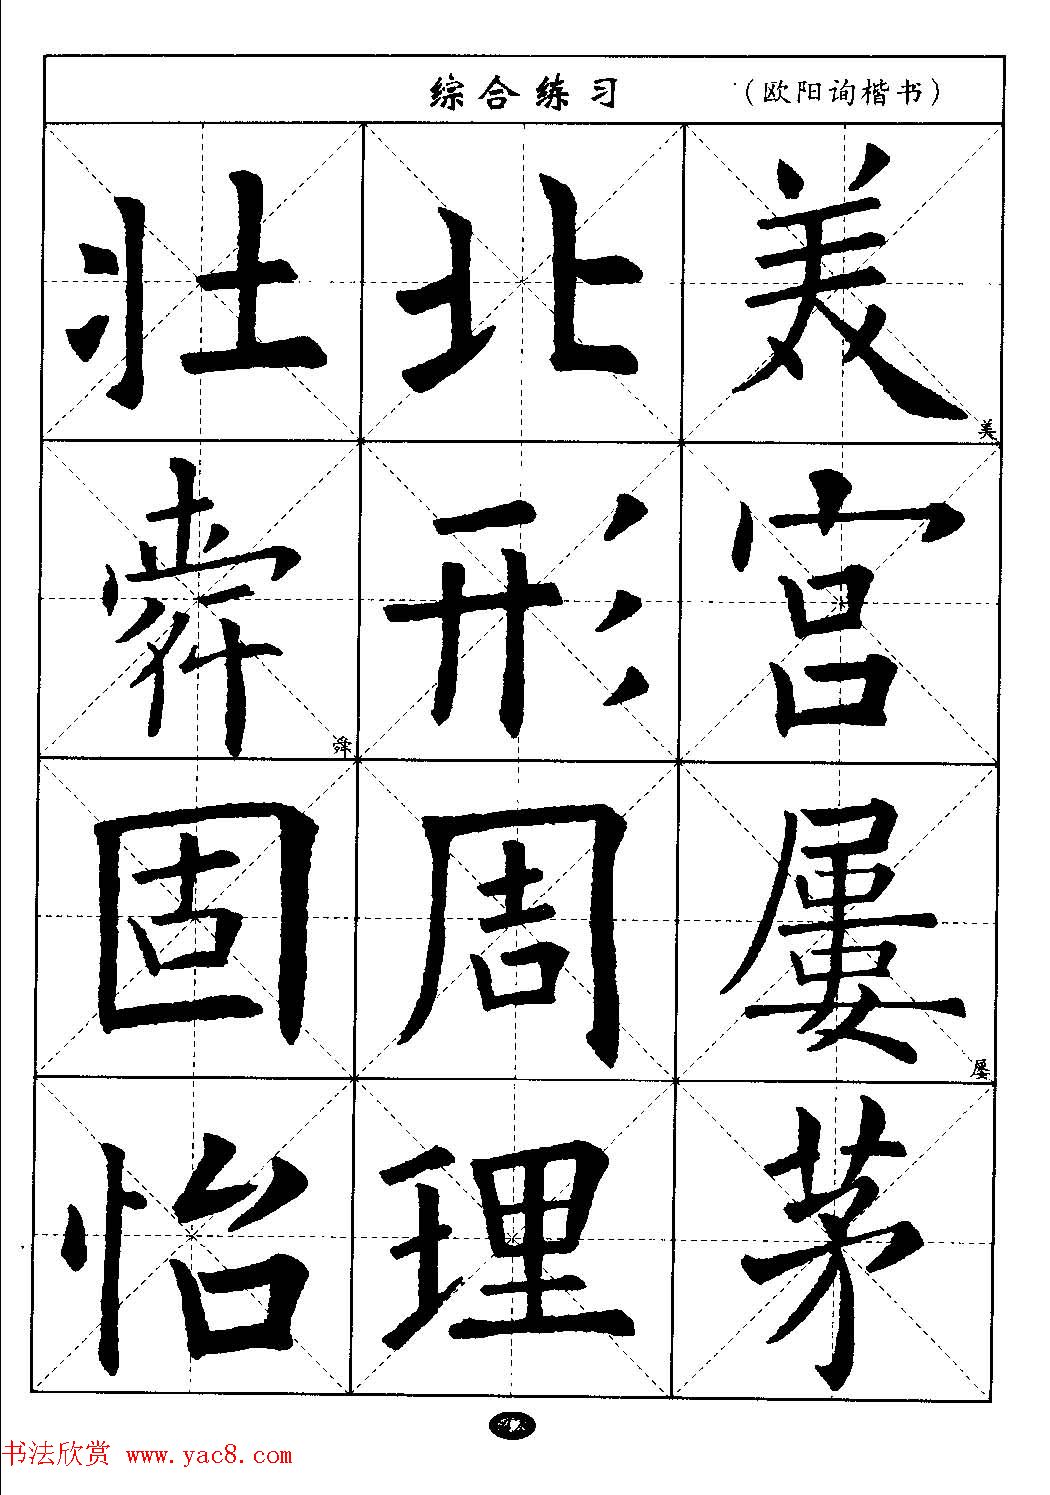 综合练习 （欧阳询楷书）
壮 北 美 美
舜 舜 形 宫
固 周 屡 屡
怡 理 茅
书法欣赏 www.yac8.com